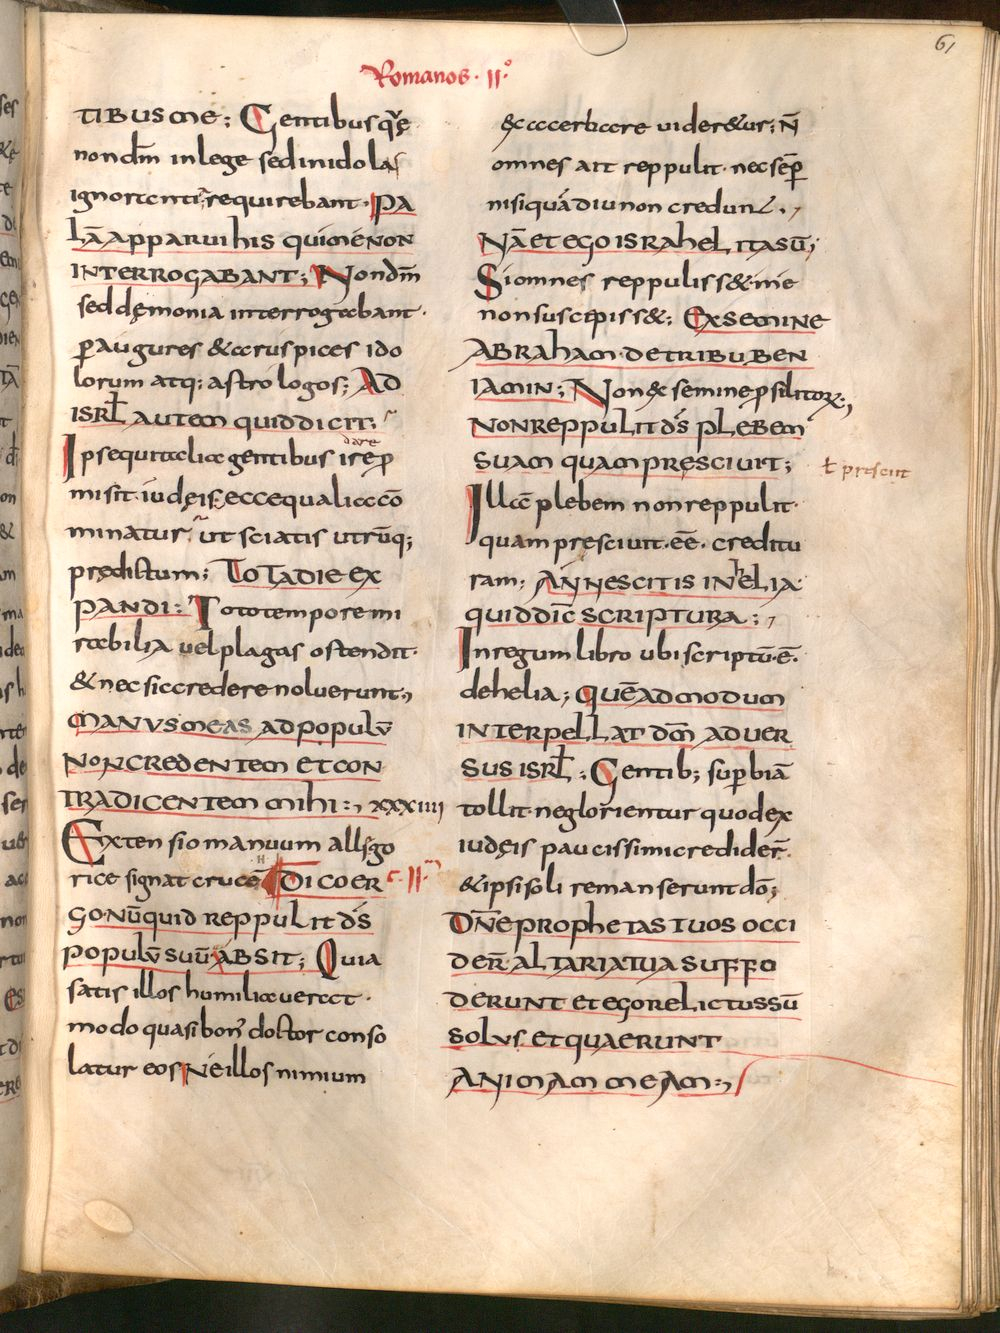 61
Romanos · II°
TIBUS ME; Gentibus q̄ę
non dm̄ in lege sed in idolas
ignorantia requirebant · PA
LĀ APPARUI HIS QUI ME NON
INTERROGABANT; Non dm̄
sed dęmonia interrogabant ·
ꝑ augures & aruspices ido
lorum atq; astrologos; AD
ISRL̄ AUTEM QUID DICIT;
Ipse qui talia gentibus
dare
misit · iudęis, ecce qualia cō
minatur ut sciatis utrūq;
prędictum; TOTA DIE EX
PANDI : Toto tempore mi
rabilia vel plagas ostendit ·
& nec sic credere noluerunt;
MANUS MEAS AD POPULŪ
NON CREDENTEM ET CON
TRADICENTEM MIHI :, XXXIIII
Extensio manuum allego
rice signat crucē DICO ER
GO · NŪQUID REPPULIT DS̄
POPULŪ SUŪ ABSIT; Quia
satis illos humiliaverat ·
modo quasi bon' doctor conso
latur eos Ne illos nimium
exacerbare uider&ur; N̄
omnes ait reppulit · nec semꝑ
nisi quādiu non credunt ·,
NĀ ET EGO ISRAHELITA SŪ;
Si omnes reppuliss& · me
non suscepiss&; EX SEMINE
ABRAHAM · DE TRIBU BEN
IAMIN; Non ex semine ꝓsilitoꝝ;,
NON REPPULIT DS̄ PLEBEM
SUAM QUAM PRĘSCIVIT;
ł presciit
Illā plebem non reppulit ·
quam pręscivit · ēē · creditu
ram; AN NESCITIS IN HELIA
QUID DIC̄ SCRIPTURA :,
In regum libro ubi scriptū · ē ·
de helia; QUĒADMODUM
INTERPELLAT DM̄ ADVER
SUS ISRL̄ ; Gentib; suꝑbiā
tollit · ne glorientur quod ex
iudęis paucissimi credider̄ ·
& ipsi soli remanserunt dō;
DN̄E PROPHETAS TUOS OCCI
DER̄ · ALTARIA TUA SUFFO
DERUNT ET EGO RELICTUS SŪ
SOLUS ET QUAERUNT
ANIMAM MEAM :,